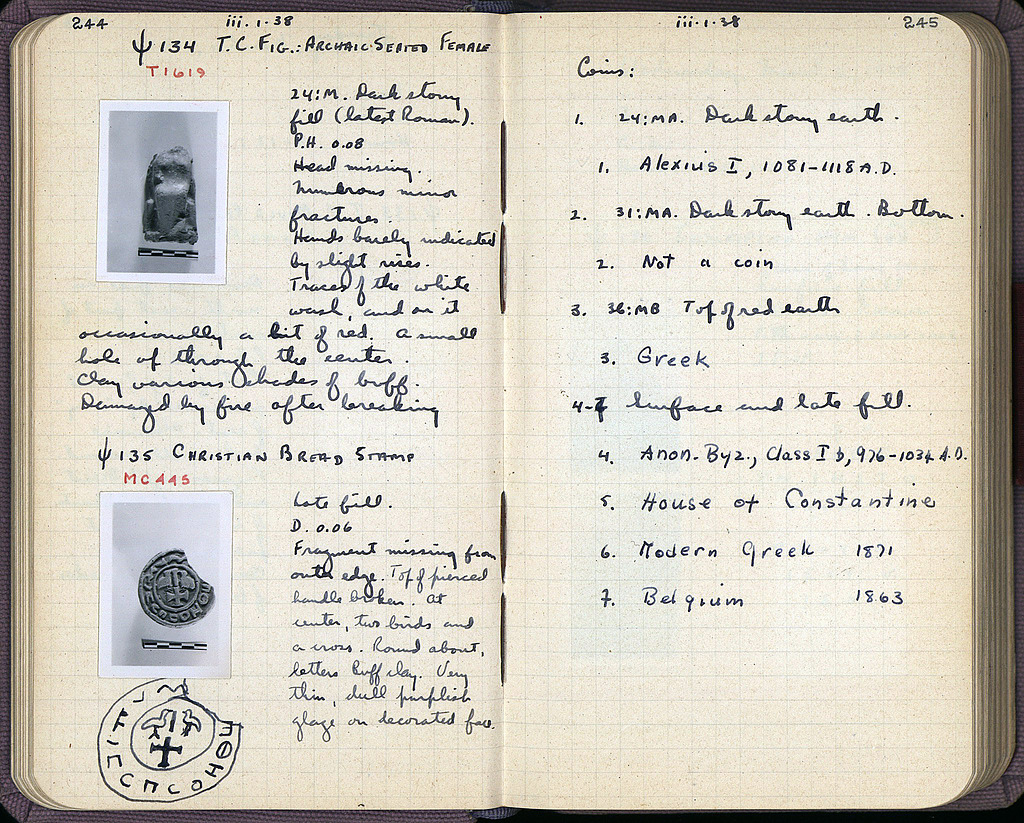 244
iii.1.38
Ψ 134 T.C. FIG.: ARCHAIC SEATED FEMALE
T1619
24:M. Dark stony
fill (latest Roman).
P.H. 0.08
Head missing.
Numerous minor
fractures.
Hands barely indicated
by slight rises.
Traces of the white
wash, and on it
occasionally a bit of red. A small
hole of through the center.
Clay various shades of buff.
Damaged by fire after breaking
Ψ 135 CHRISTIAN BREAD STAMP
MC445
Late fill.
D. 0.06
Fragment missing from
outer edge. Top of pierced
handle broken. At
center, two birds and
a cross. Round about,
letters Buff clay. Very
thin, dull purplish
glaze on decorated face.
iii.1.38
245
Coins:
1. 24:MA. Dark stony earth.
1. Alexius I, 1081-1118 A.D.
2. 31:MA. Dark stony earth. Bottom.
2. Not a coin
3. 36:MB Top of red earth
3. Greek
4-7 Surface and late fill.
4. Anon. Byz., Class I b, 976-1034 A.D.
5. House of Constantine
6. Modern Greek 1871
7. Belgium 1863